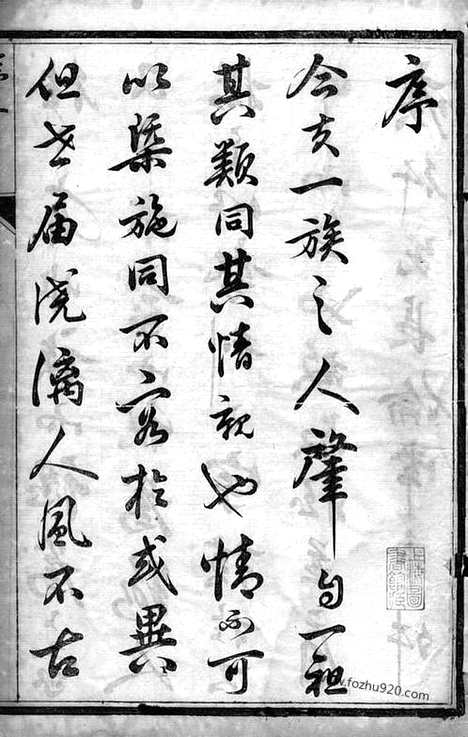 序
今夫一族之人肇自一祖
其類同其情親也情可
以槩施同不容於或異
但世屆澆漓人風不古
上海圖書館藏
www.fozhu920.com